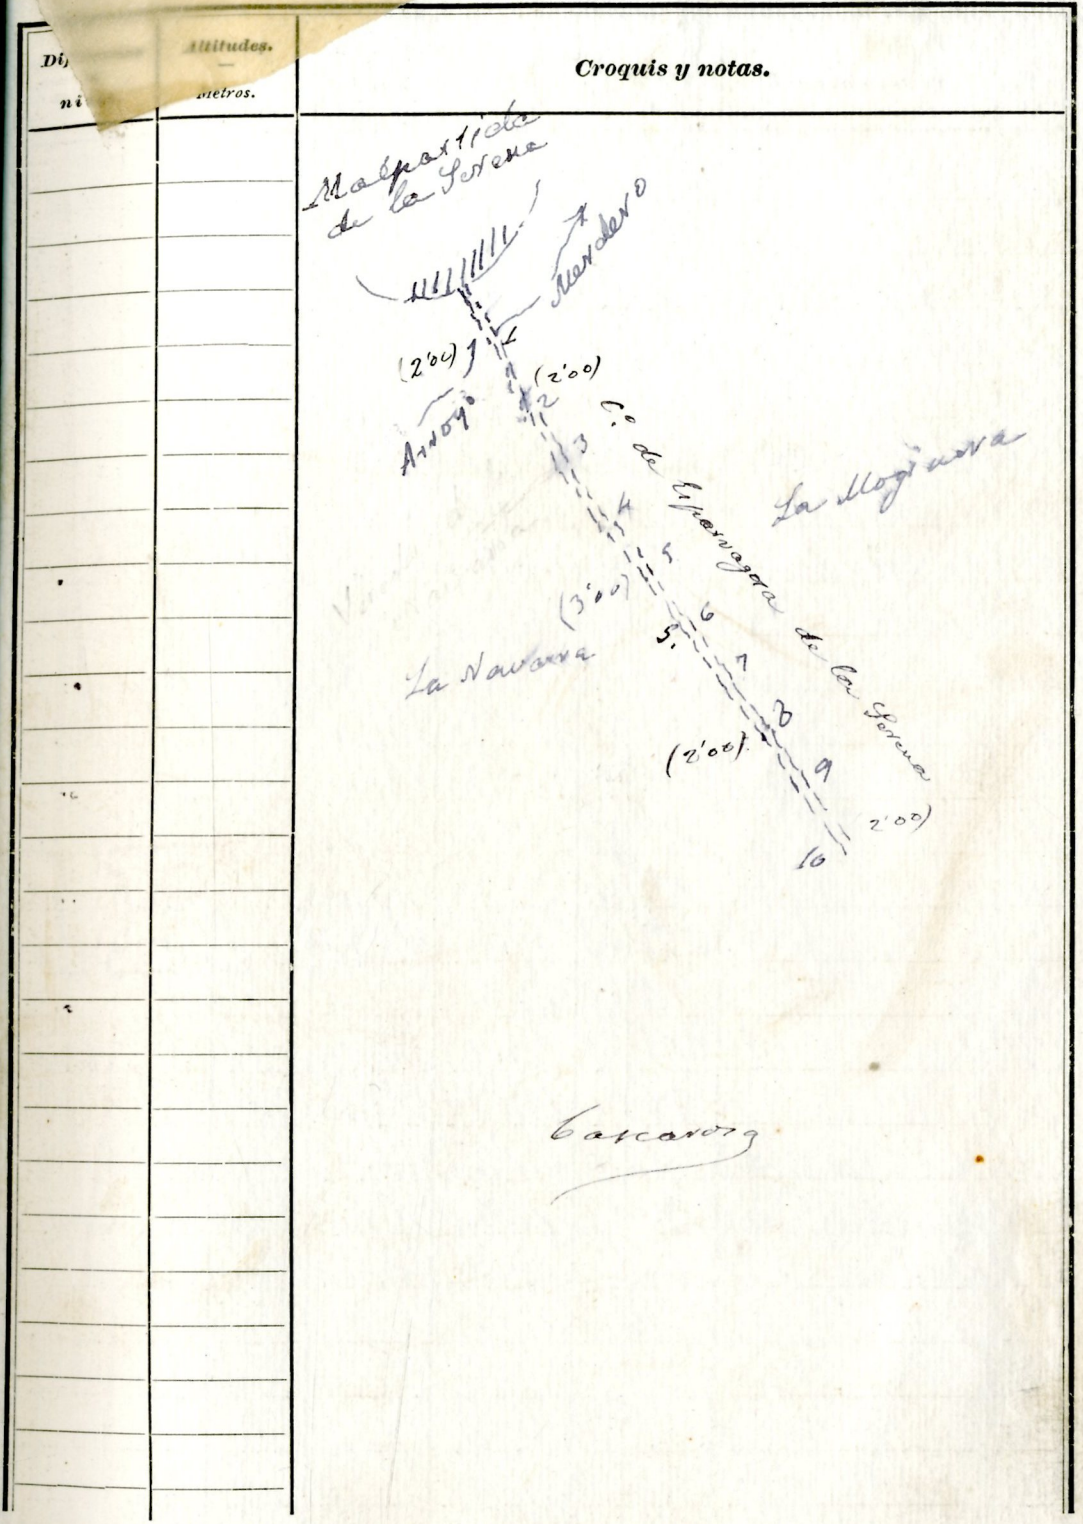 Altitudes.
Metros.
Croquis y notas.
Malpartida
de la Serena
Merdero
1
(2'00)
(2'00)
Arroyo
2
3
C.º de Esparragosa de la Serena
La Moginera
4
5
(3'00)
6
5.
La Navarra
7
8
(2'00)
9
2'00)
10